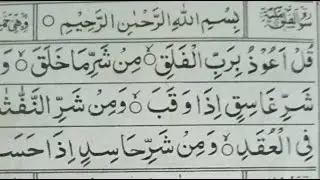 بِسْمِ اللّٰهِ الرَّحْمٰنِ الرَّحِيْمِ
قُلْ اَعُوْذُ بِرَبِّ الْفَلَقِ ۙ مِنْ شَرِّ مَا خَلَقَ ۙ وَ
شَرِّ غَاسِقٍ اِذَا وَقَبَ ۙ وَمِنْ شَرِّ النَّفّٰثٰ
فِى الْعُقَدِ ۙ وَمِنْ شَرِّ حَاسِدٍ اِذَا حَسَ